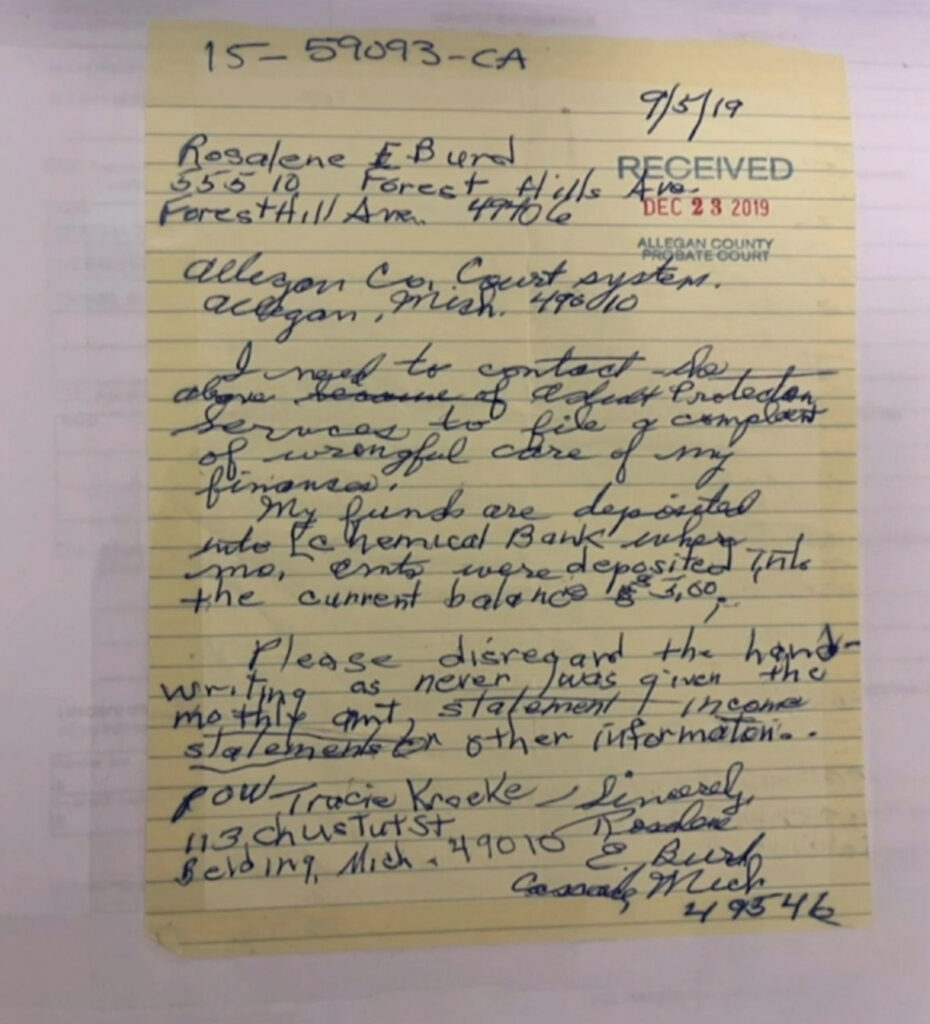 15-59093-CA
9/5/19
Rosalene E Burd
555 10 Forest Hills Ave.
ForestHill Ave. 49406
RECEIVED
DEC 23 2019
ALLEGAN COUNTY
PROBATE COURT
Allegan Co. Court system.
Allegan, Mish. 490010
I need to contact the
above because of Adult Protection
Services to file a complaint
of wrongful care of my
finances.
My funds are deposited
into Chemical Bank where
mo. amts were deposited Into
the current balance 3,00,
Please disregard the hand-
writing as never was given the
monthly amt, statement, income
statement or other information..
POW Tracie Krocke, Sincerely,
113, St Rosalene
Belding, Mich. 49010 E. Burd
Mich
49546